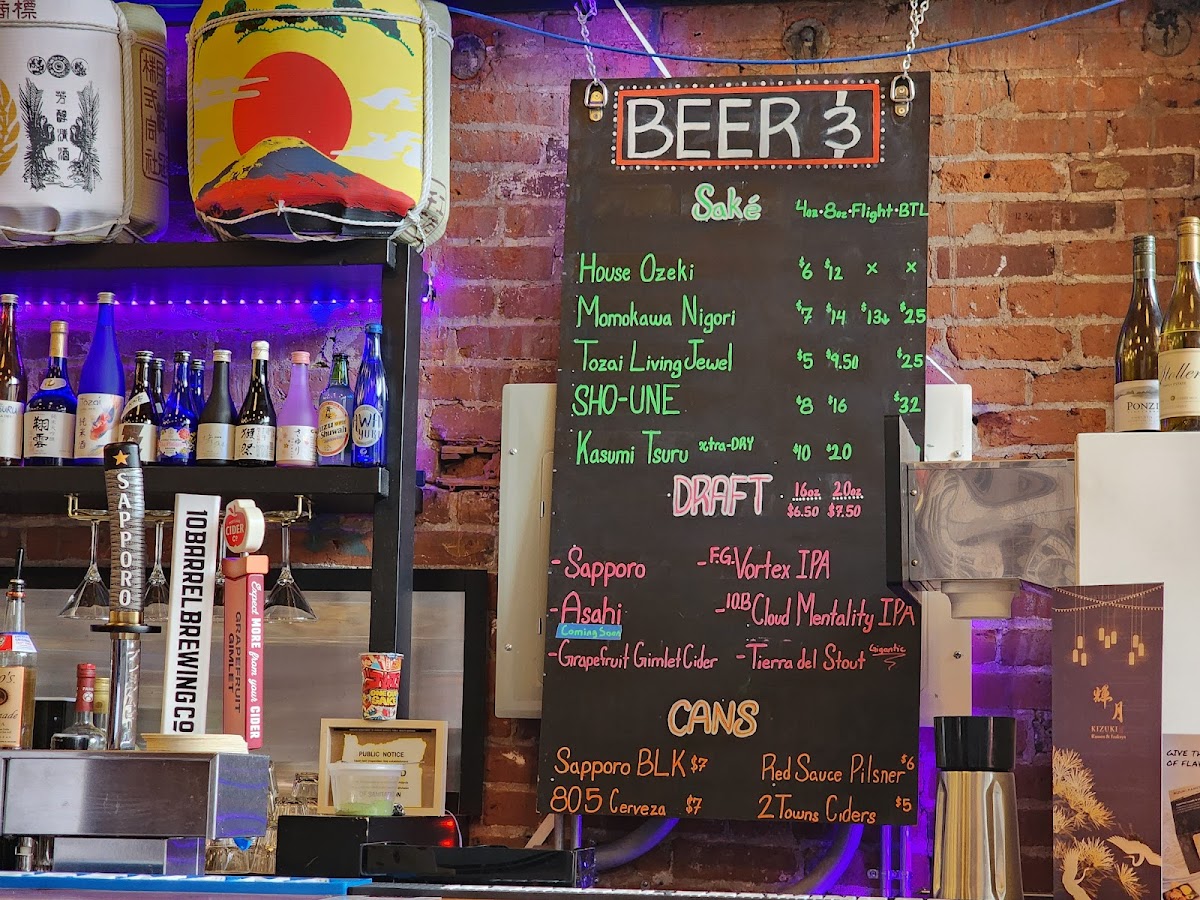 商標
芳醇清酒
株式会社
BEER &
Saké 4oz·8oz·Flight·BTL
House Ozeki $6 $12 x x
Momokawa Nigori $7 $14 $13 $25
Tozai Living Jewel $5 $9.50 $25
SHO-UNE $8 $16 $32
Kasumi Tsuru xtra-DRY $10 $20
DRAFT 16oz 20oz
$6.50 $7.50
-Sapporo -F.G. Vortex IPA
-Asahi -10.B Cloud Mentality IPA
Coming Soon
-Grapefruit Gimlet Cider -Tierra del Stout Gigantic
CANS
Sapporo BLK $7 Red Sauce Pilsner $6
805 Cerveza $7 2 Towns Ciders $5
Tozai
翔雲
獺祭
SAPPORO
10 BARREL BREWING CO
CIDER
CO
Expect MORE from your CIDER
GRAPEFRUIT
GIMLET
ONE CUP
PUBLIC NOTICE
PONZI
輝月
KIZUKI
Ramen & Izakaya
GIVE TH
OF FLA